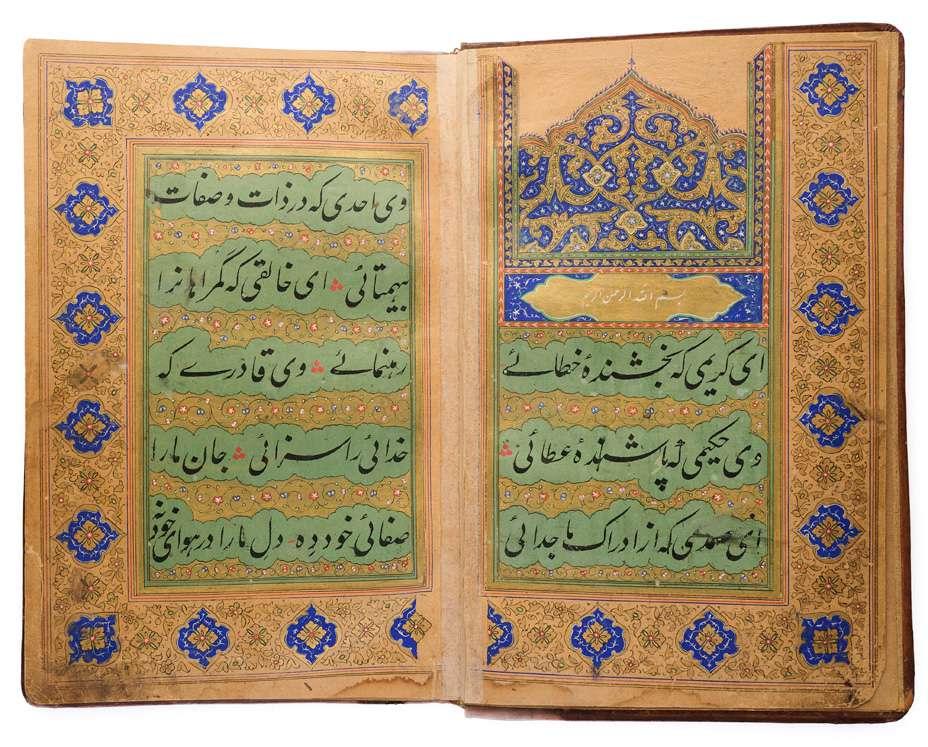 بسم الله الرحمن الرحیم
ای کریمی که بخشندهٔ خطائے
وی حکیمی که پاشندهٔ عطائی
ای صمدی که از ادراک ما جدائی
وی احدی که در ذات و صفات
بیهمتائی ای خالقی که گمراهانرا
رهنمائے وی قادرے که
خدائی را سزائی جان ما را
صفائی خود ده دل ما را در هوای خود